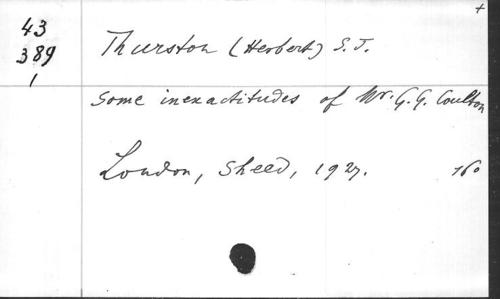 +
43
389
1
Thurston (Herbert) S.J.
Some inexactitudes of Mr. G. G. Coulton
London, Sheed, 1927. 16°